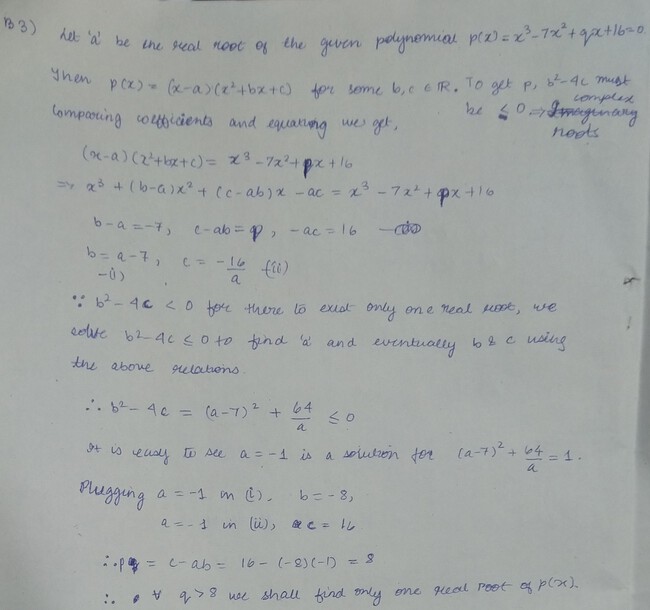 B3) Let 'a' be the real root of the given polynomial p(x) = x³ - 7x² + qx + 16 = 0.
Then p(x) = (x-a)(x²+bx+c) for some b, c ∈ ℝ. To get p, b²-4c must
be ≤ 0 ⇒ complex roots
Comparing coefficients and equating we get,
(x-a)(x²+bx+c) = x³ - 7x² + px + 16
⇒ x³ + (b-a)x² + (c-ab)x - ac = x³ - 7x² + px + 16
b-a = -7, c-ab = p, -ac = 16
b = a-7, c = -16/a (ii)
-(i)
∵ b² - 4c < 0 for there to exist only one real root, we
solve b²-4c ≤ 0 to find 'a' and eventually b & c using
the above relations.
∴ b² - 4c = (a-7)² + 64/a ≤ 0
It is easy to see a = -1 is a solution for (a-7)² + 64/a = 1.
Plugging a = -1 in (i), b = -8,
a = -1 in (ii), c = 16
∴ p = c - ab = 16 - (-8)(-1) = 8
∴ ∀ q > 8 we shall find only one real root of p(x).